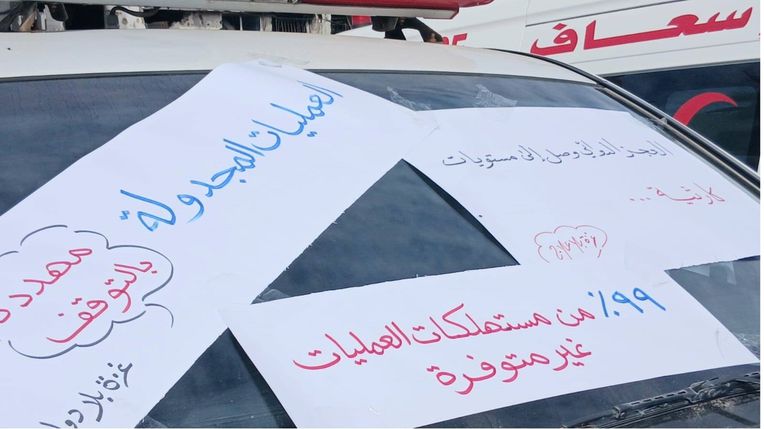 إسعاف
العمليات المجدولة
مهددة
بالتوقف
غزة بلا دوا
العجز الدوائي وصل إلى مستويات
كارثية ...
٩٩٪ من مستهلكات العمليات
غير متوفرة